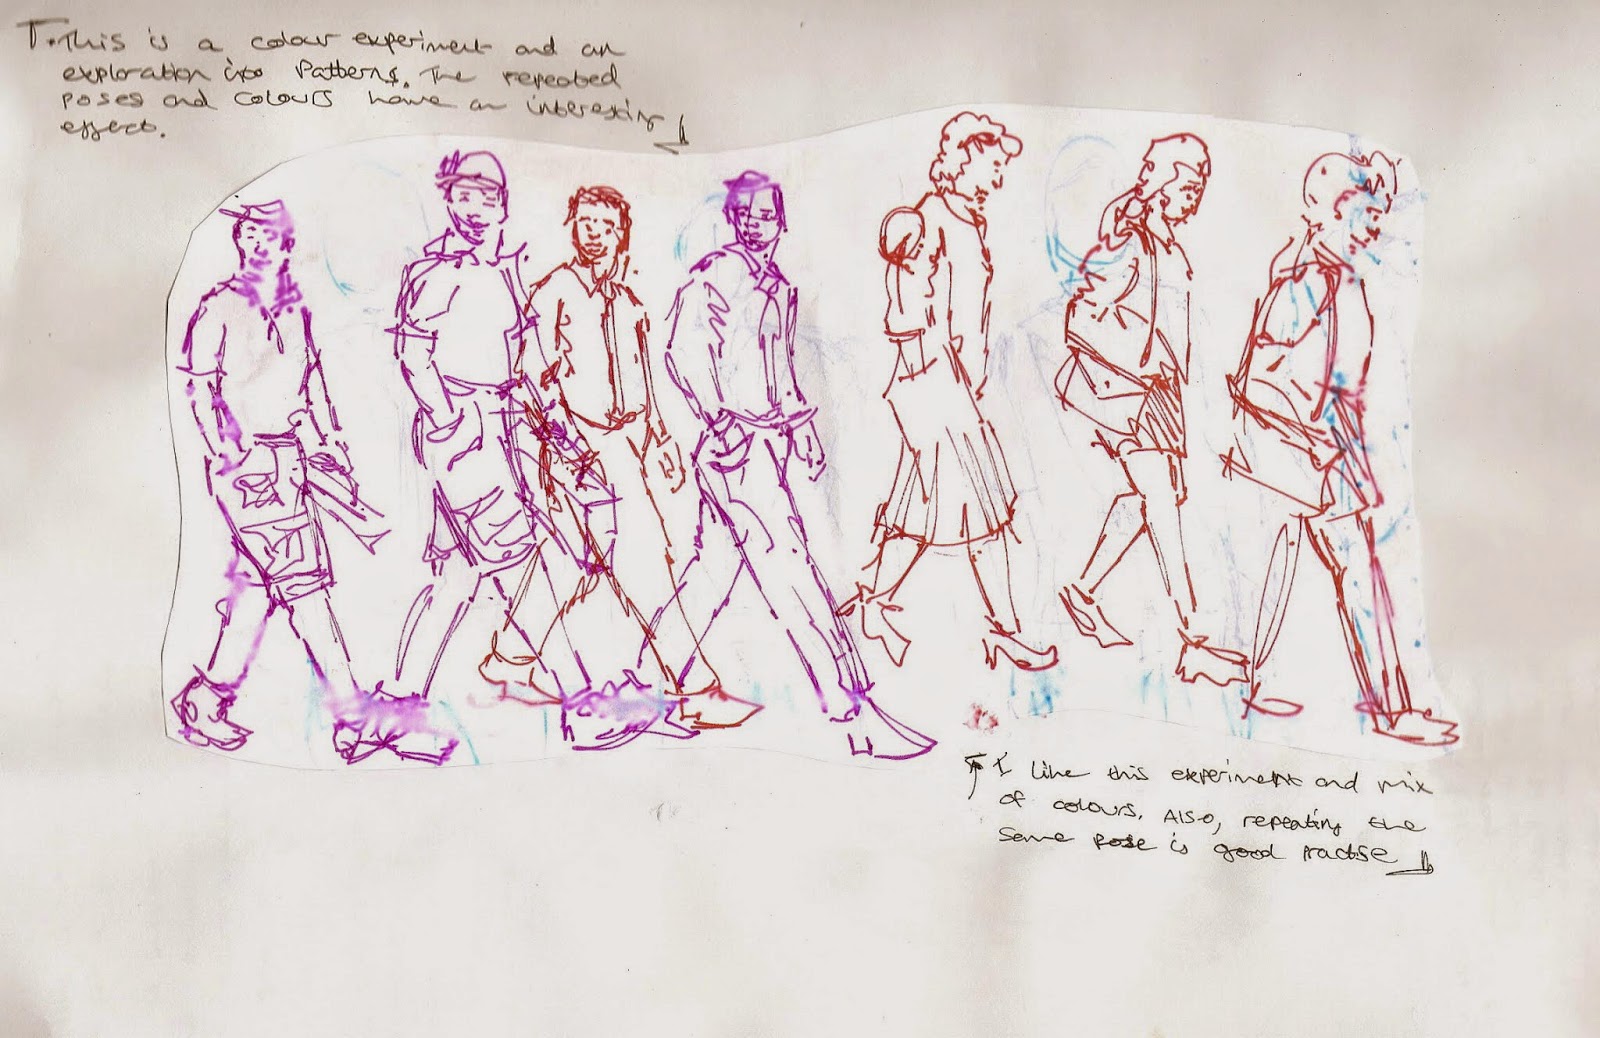 This is a colour experiment and an
exploration into Patterns. The repeated
poses and colours have an interesting
effect.
I like this experiment and mix
of colours. Also, repeating the
same pose is good practise